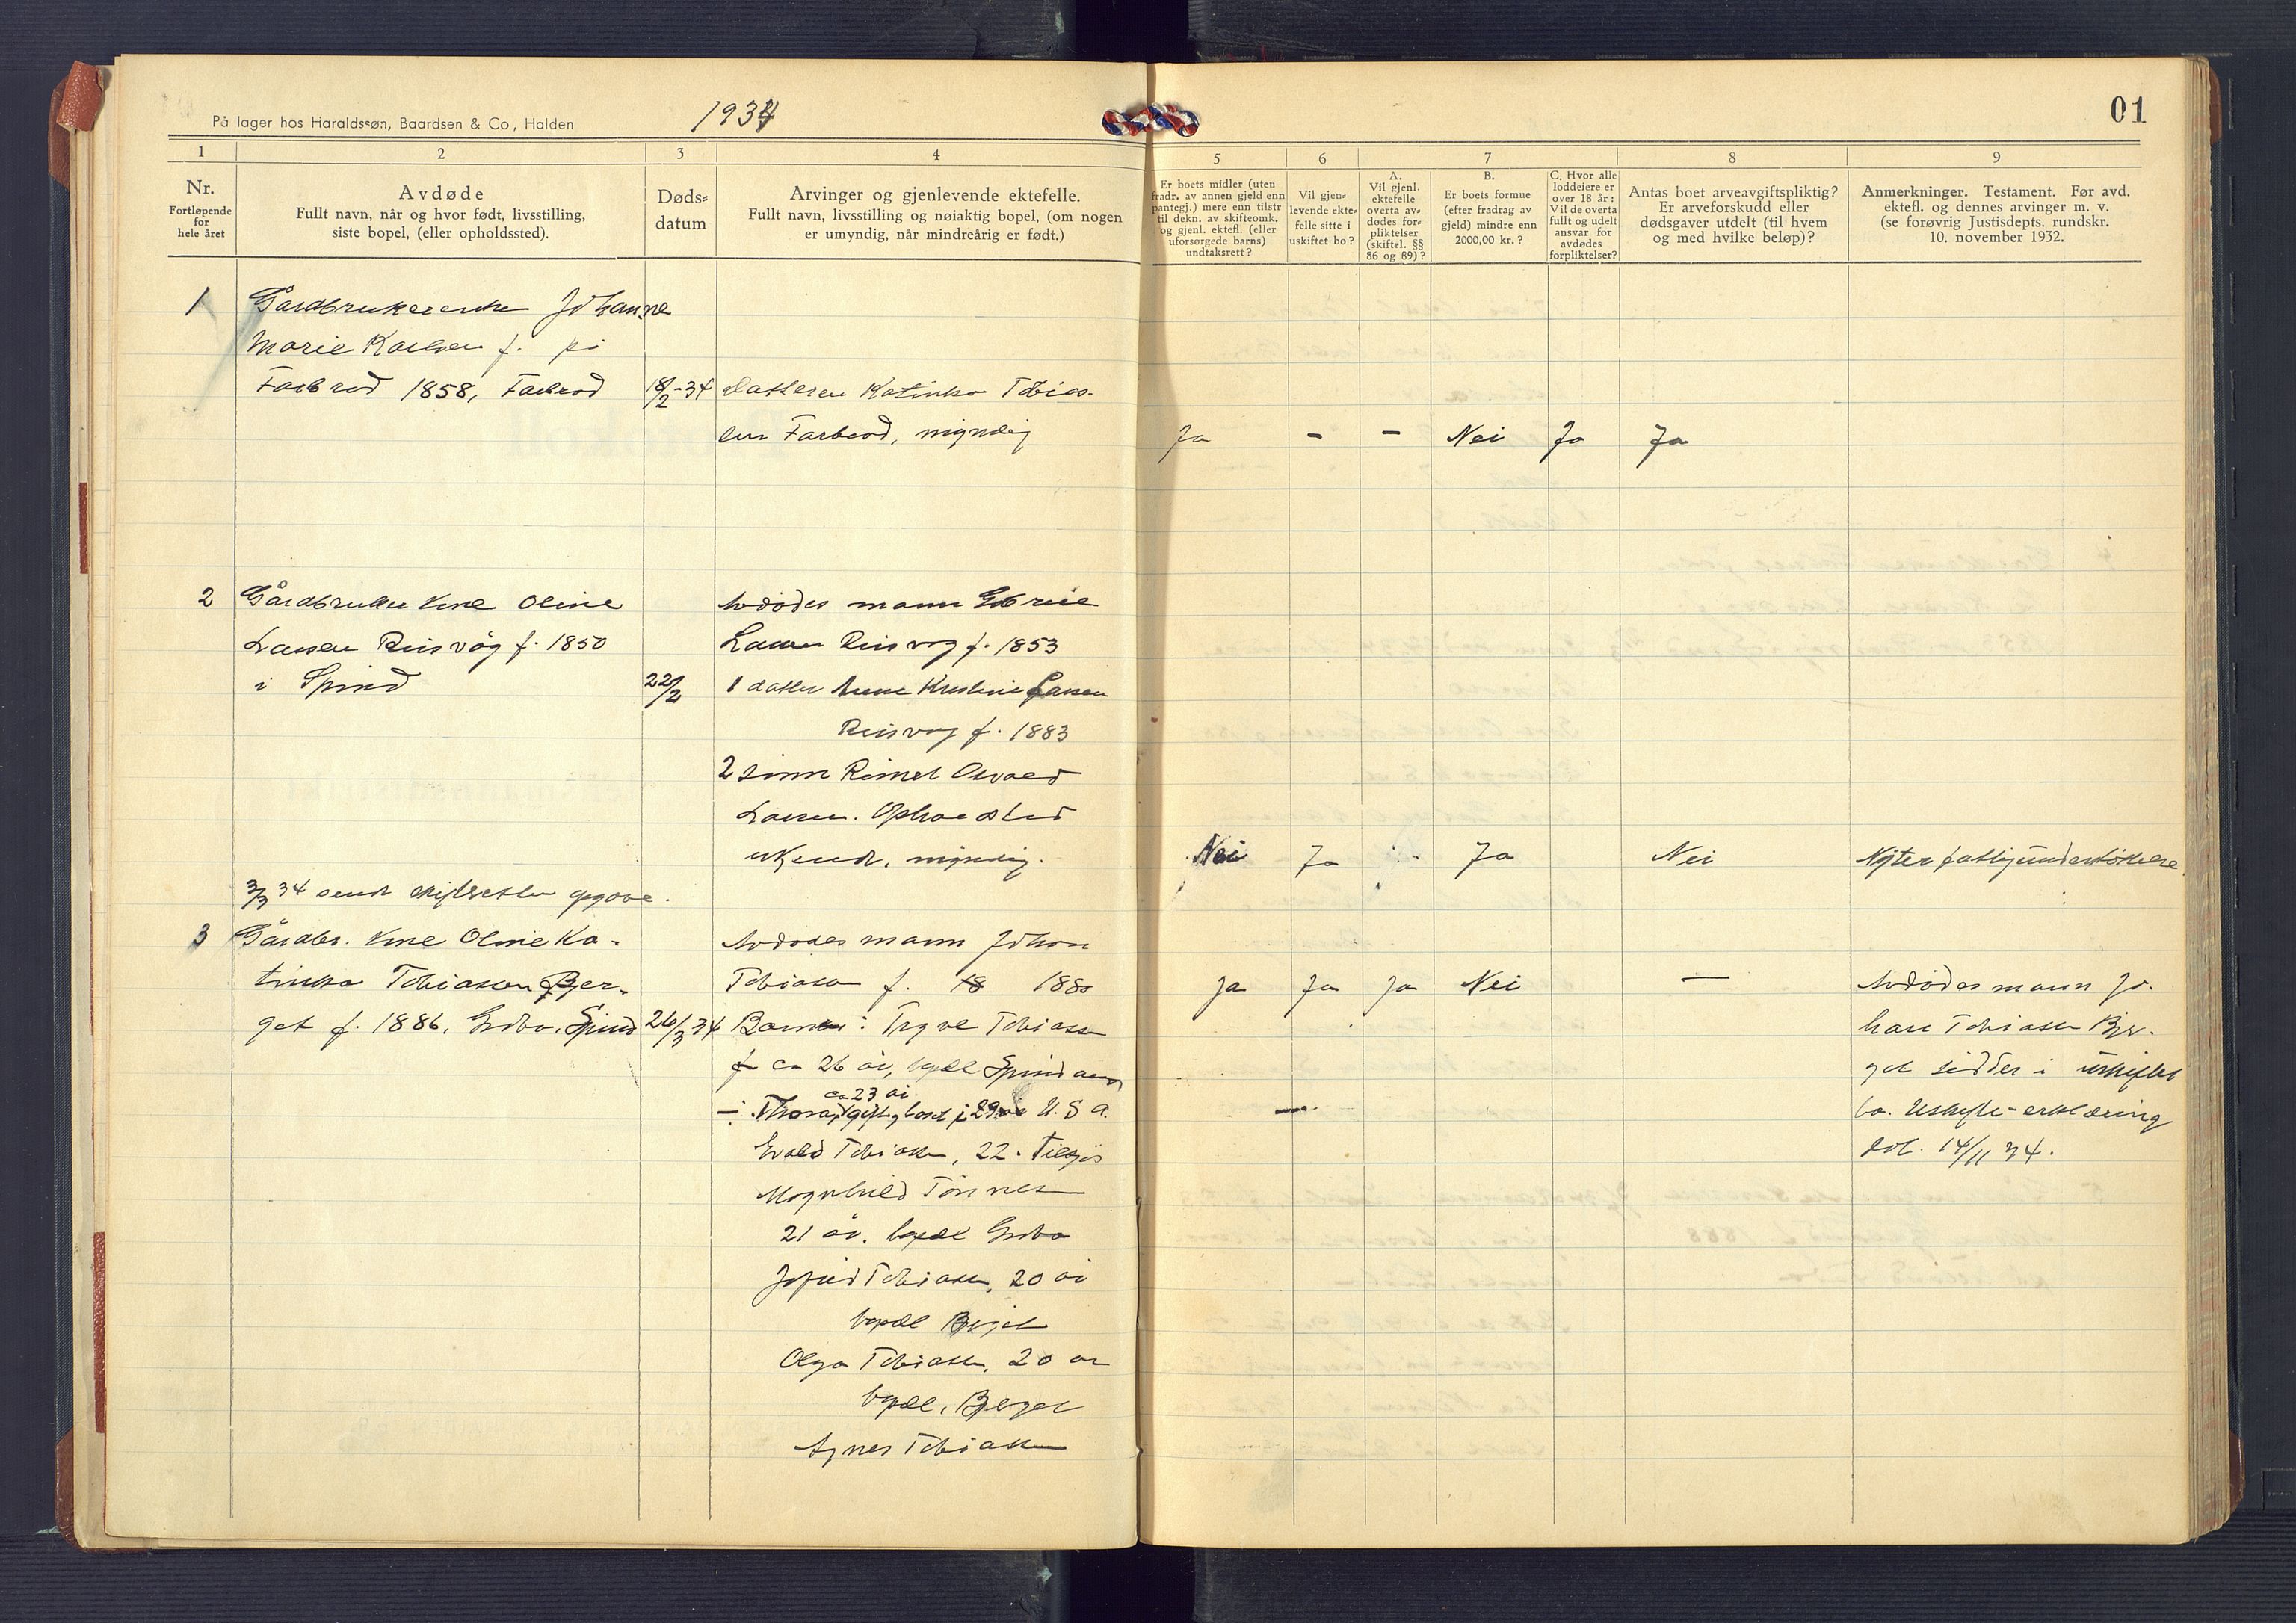 På lager hos Haraldssøn, Baardsen & Co, Halden
1934
01
1
2
3
4
5
6
7
8
9
Nr.
Fortløpende
for
hele året
Avdøde
Fullt navn, når og hvor født, livsstilling,
siste bopel, (eller opholdssted).
Døds-
datum
Arvinger og gjenlevende ektefelle.
Fullt navn, livsstilling og nøiaktig bopel, (om nogen
er umyndig, når mindreårig er født.)
Er boets midler (uten
fradr. av annen gjeld enn
pantegj.) mere enn tilstr
til dekn. av skifteomk.
og gjenl. ektefl. (eller
uforsørgede barns)
undtaksrett?
Vil gjen-
levende ekte-
felle sitte i
uskiftet bo?
A.
Vil gjenl.
ektefelle
overta av-
dødes for-
pliktelser
(skiftel. §§
86 og 89)?
B.
Er boets formue
(efter fradrag av
gjeld) mindre enn
2000,00 kr.?
C. Hvor alle
loddeiere er
over 18 år:
Vil de overta
fullt og udelt
ansvar for
avdødes
forpliktelser?
Antas boet arveavgiftspliktig?
Er arveforskudd eller
dødsgaver utdelt (til hvem
og med hvilke beløp)?
Anmerkninger. Testament. Før avd.
ektefl. og dennes arvinger m. v.
(se forøvrig Justisdepts. rundskr.
10. november 1932.
1 Gårdbrukerenke Johanne
Marie Karlsen f. på
Farbrod 1858, Farbrod 18/2-34 Datteren Katinka Tobias-
sen Farbrod, myndig Ja - - Nei Ja Ja
2 Gårdbruker kone Oline Avdødes mann Gabriel
Larsen Reisvåg f. 1850 Larsen Reisvåg f. 1853
i Spind 22/2 1 datter Anne Kristine Larsen
Reisvåg f. 1883
2 sønn Reimet Olvald
Larsen. Opholdsted
ukjendt, myndig. Nei Ja Ja Nei Nyter fattigunderstøttelse
3/3 34 sendt skifteretten opgave.
3 Gårdbr. kone Oline Ka- Avdødes mann Johan
tinka Tobiassen Bjer- Tobiassen f. 18 1880 Ja Ja Ja Nei — Avdødes mann Jo-
get f. 1886, Spind 26/3 34 Barn: Trygve Tobiassen han Tobiassen Bjer-
f ca 26 år, bopæl Spind get sidder i uskiftet
ca 23 år
Thora, gift, boset i U. S. A. — bo. Uskifte-erklæring
Evald Tobiassen, 22. Tilsjøs dat. 14/11 34.
Magnhild Tønnes
21 år. bopæl
Tobiassen, 20 år
bopæl Bjerget
Olga Tobiassen, 20 år
bopæl, Bjerget
Agnes Tobiassen